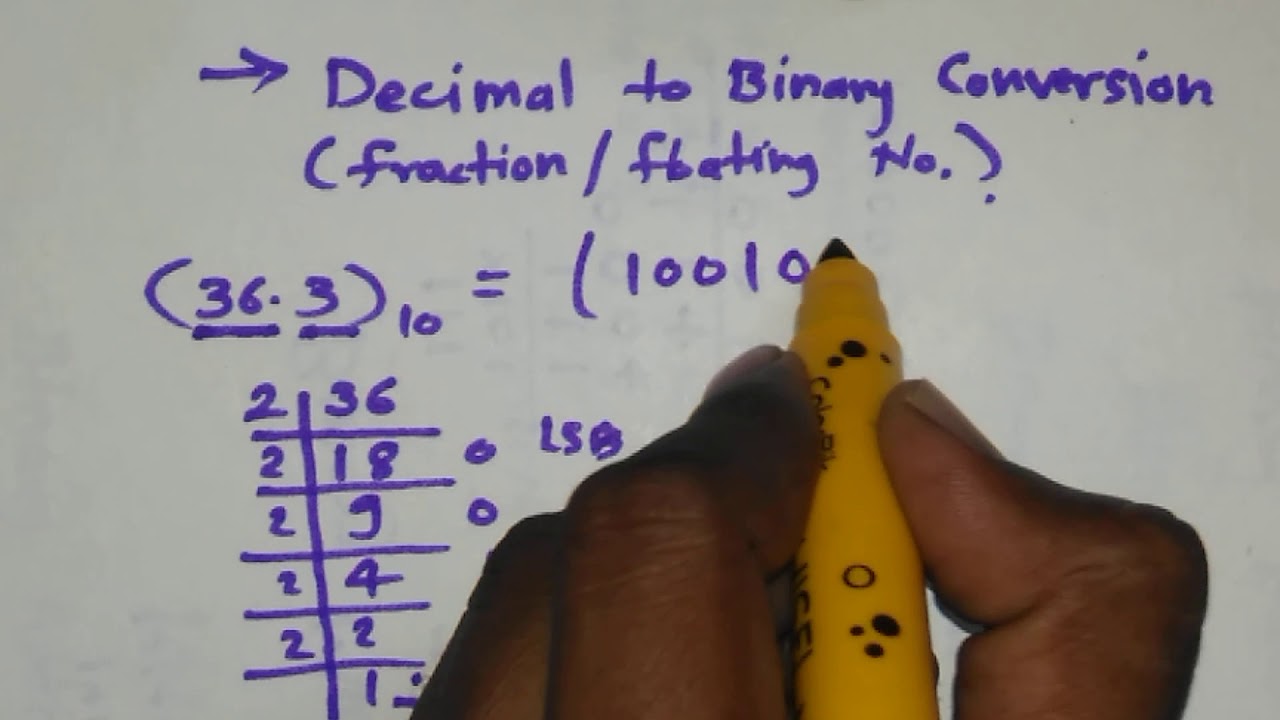 → Decimal to Binary Conversion
(fraction/floating No.)
(36.3)10 = (10010
2 36
2 18 0 LSB
2 9 0
2 4
2 2
1